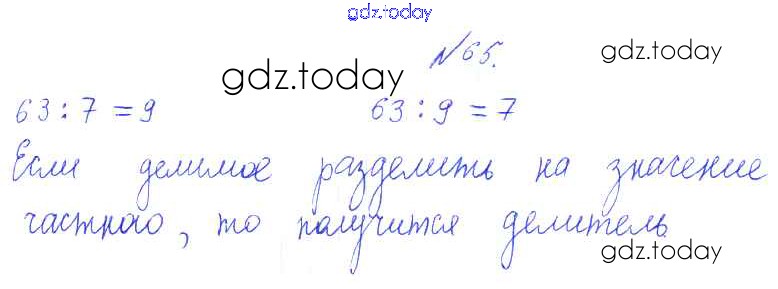 gdz.today
№65.
gdz.today
gdz.today
63 : 7 = 9 63 : 9 = 7
Если делимое разделить на значение
частного, то получится делитель.
gdz.today